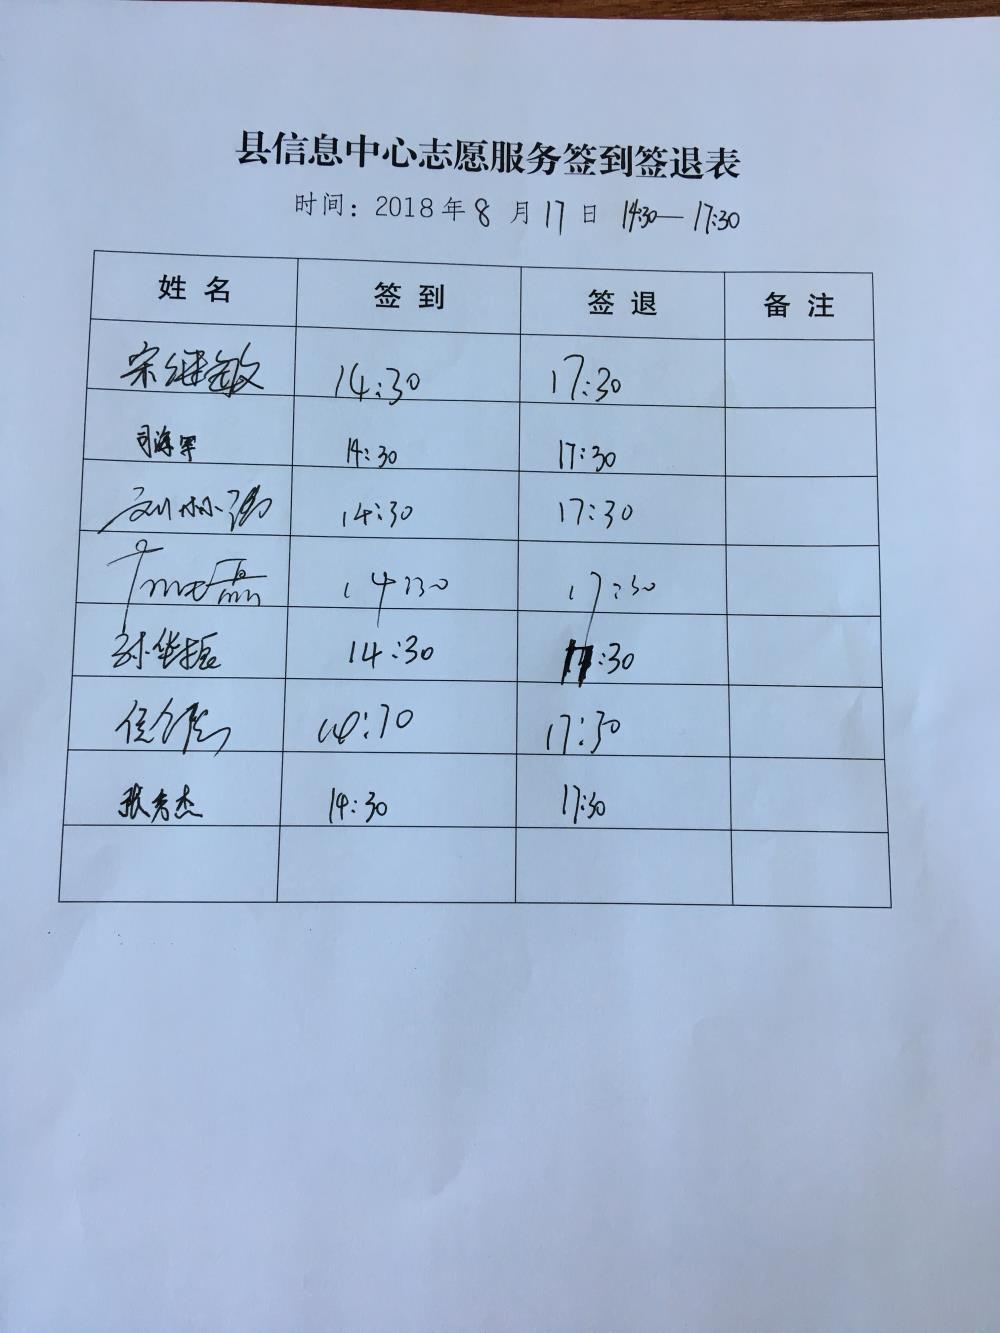 县信息中心志愿服务签到签退表
时间：2018年8月17日 14:30—17:30
姓名 签到 签退 备注
宋继敏 14:30 17:30
司海军 14:30 17:30
刘小强 14:30 17:30
14:30 17:30
孙华振 14:30 17:30
14:30 17:30
张秀杰 14:30 17:30